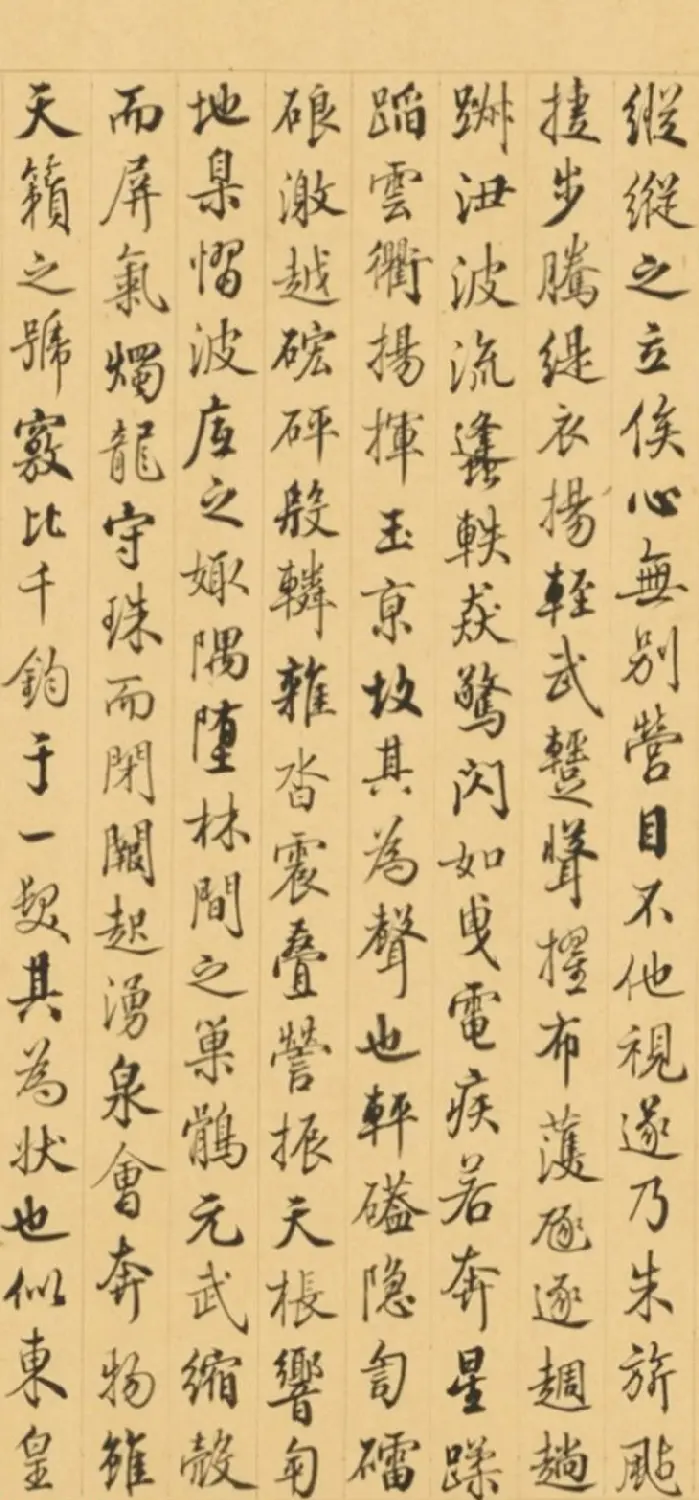 縱縱之立俟心無別營目不他視遂乃朱旂颭
捷步騰緹衣揚輕武聳擢布護逐趟
跰波流軼猋驚閃如曳電疾若奔星蹂
蹈雲衢揚揮玉京故其為聲也軯磕隐訇礌
硠激越硡砰殷轔雜沓震疊謍振天棖響匉
地臬慴波底之娵隅墮林間之巢鶻元武縮殼
而屏氣燭龍守珠而閉闕起湧泉會奔物雖
天籟之號竅比千鈞于一髮其為状也似東皇